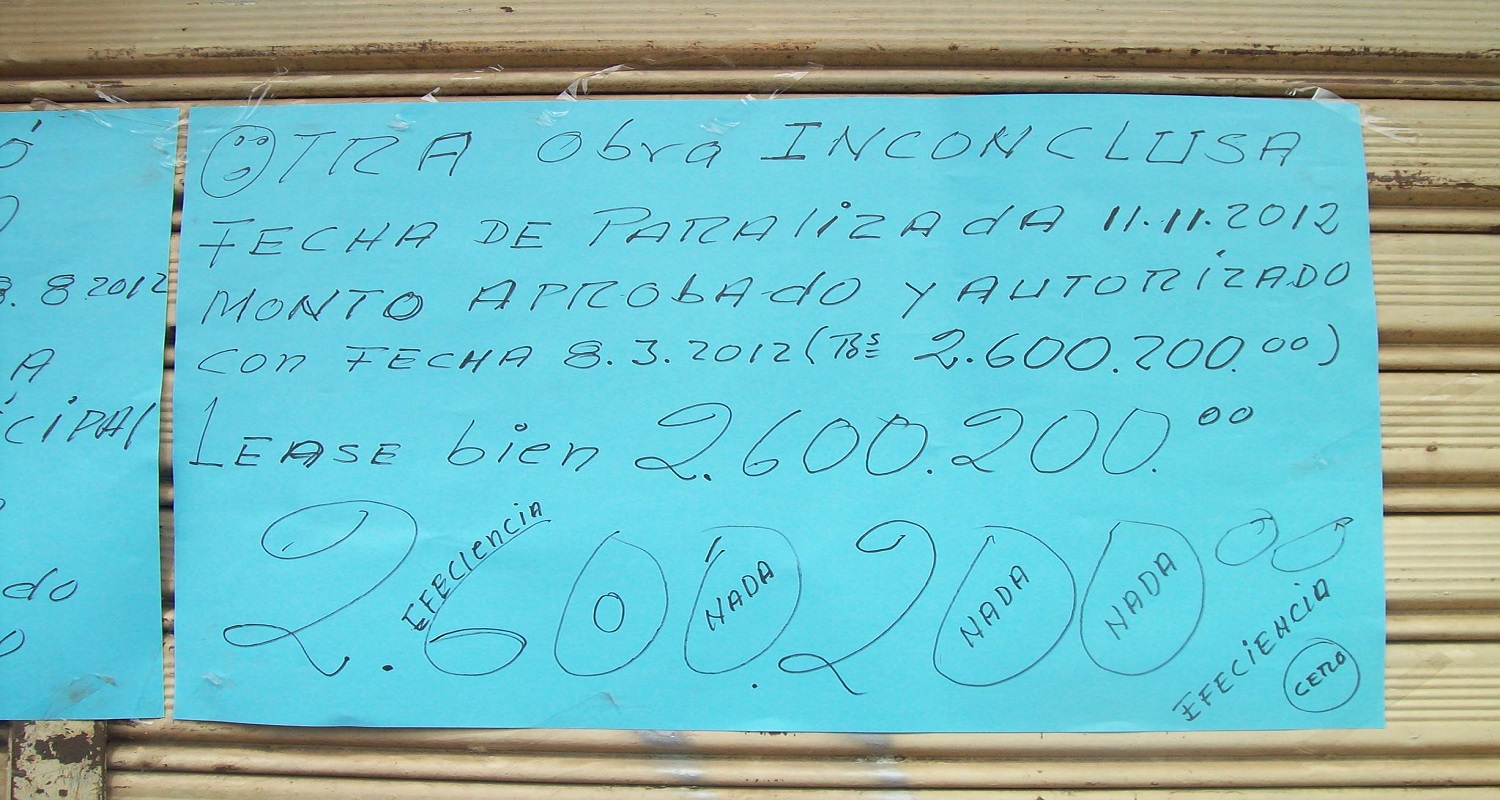 Ó
8. 8 2012
A
CIPAl
do
OTRA Obra INCONCLUSA
FECHA DE PARAlIZAdA 11.11.2012
MONTO APROBAdO Y AUTORIZADO
con FECHA 8.3.2012 (Bs 2.600.200.00)
LEASE bien 2.600.200.00
2.600.200.00
EFECIENCIA
O
NADA
NADA
NADA
EFECIENCIA
CERO